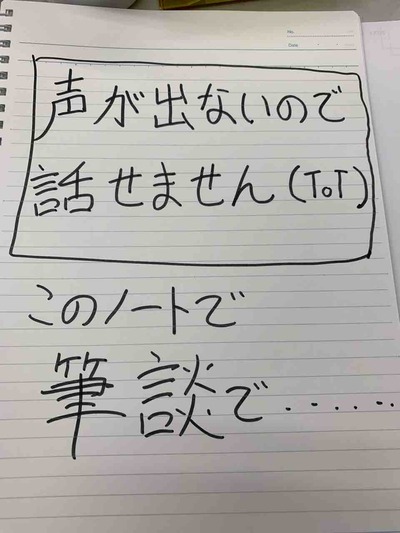 No.
Date
声が出ないので
話せません(ToT)
このノートで
筆談で......